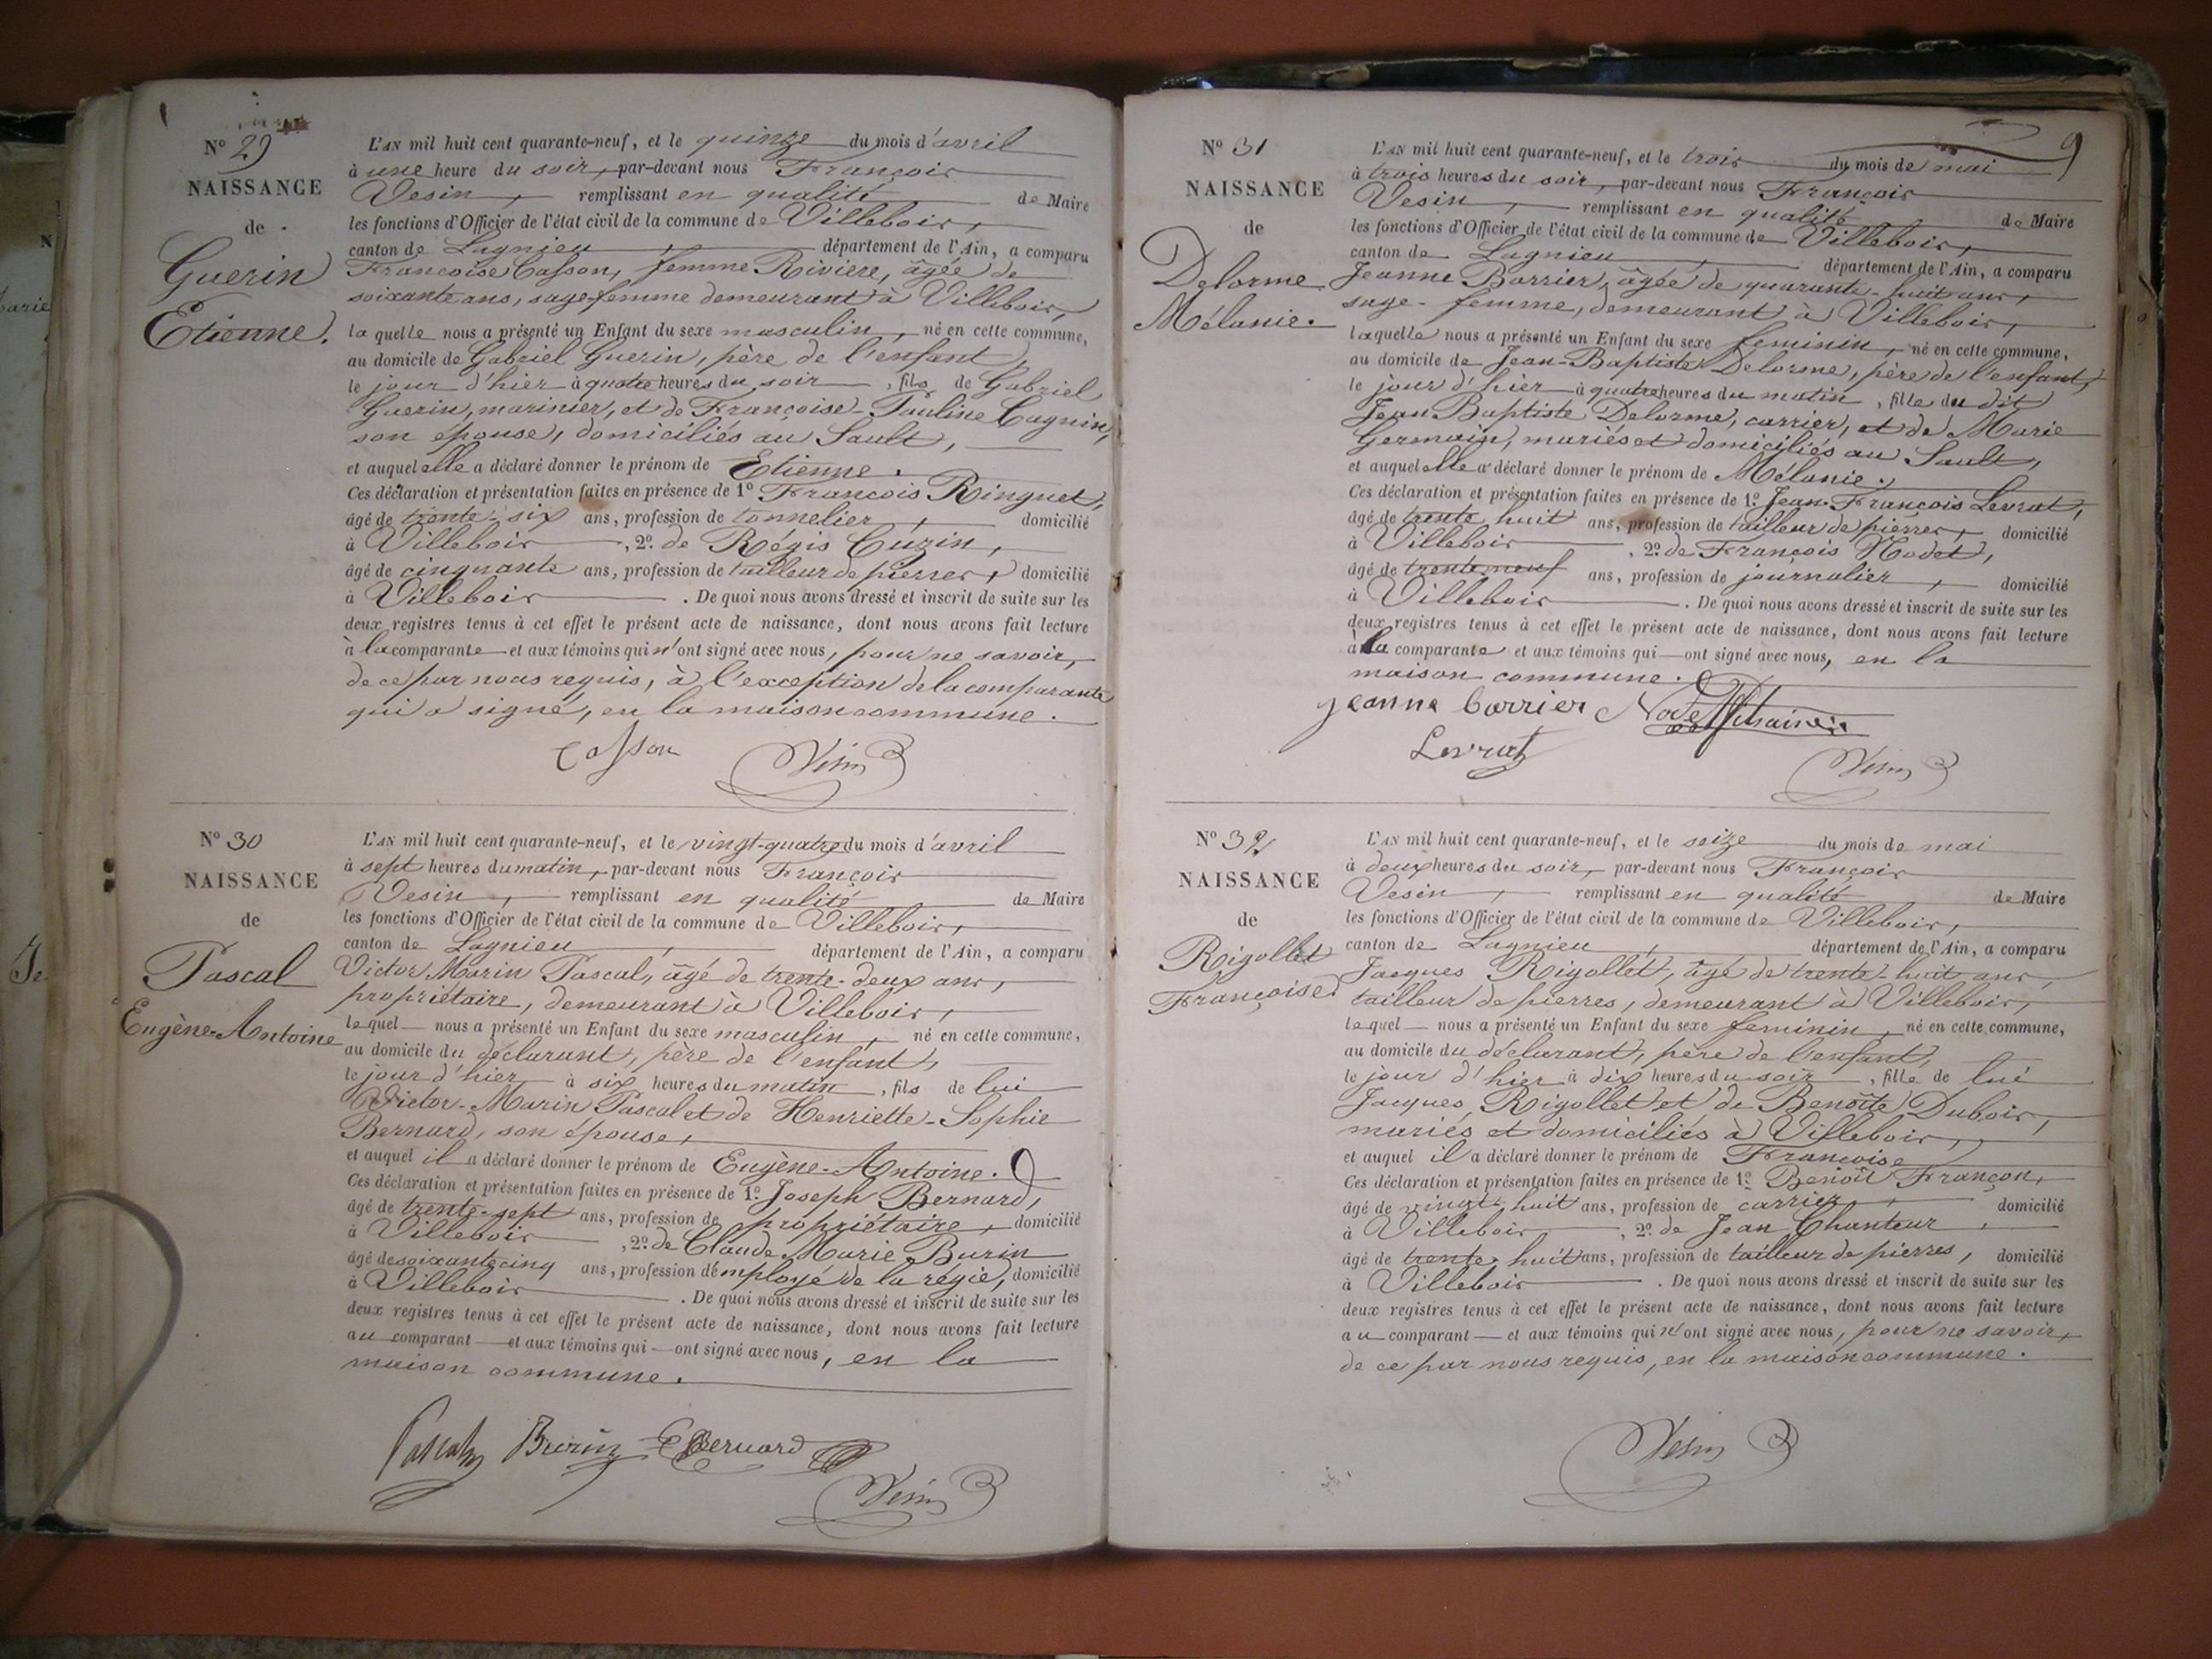 Nº 29
NAISSANCE
de
Guerin
Etienne.
L'AN mil huit cent quarante-neuf, et le quinze du mois d'avril
à une heure du soir, par-devant nous François
Vesin, remplissant en qualité de Maire
les fonctions d'Officier de l'état civil de la commune de Villebois,
canton de Lagnieu, département de l'Ain, a comparu
Francoise Casson, femme Riviere, âgée de
soixante ans, sage-femme demeurant à Villebois,
la quelle nous a présenté un Enfant du sexe masculin, né en cette commune,
au domicile de Gabriel Guerin, père de l'enfant,
le jour d'hier à quatre heures du soir, fils de Gabriel
Guerin, marinier, et de Françoise-Pauline Cagnin,
son épouse, domiciliés au Sault,
et auquel elle a déclaré donner le prénom de Etienne.
Ces déclaration et présentation faites en présence de 1º François Ringuet,
âgé de trente-six ans, profession de tonnelier, domicilié
à Villebois, 2º de Régis Cuzin,
âgé de cinquante ans, profession de tailleur de pierres, domicilié
à Villebois. De quoi nous avons dressé et inscrit de suite sur les
deux registres tenus à cet effet le présent acte de naissance, dont nous avons fait lecture
à la comparante et aux témoins qui n'ont signé avec nous, pour ne savoir,
de ce par nous requis, à l'exception de la comparante
qui a signé, en la maison commune.
Casson Vesin
Nº 30
NAISSANCE
de
Pascal
Eugène-Antoine
L'AN mil huit cent quarante-neuf, et le vingt-quatre du mois d'avril
à sept heures du matin, par-devant nous François
Vesin, remplissant en qualité de Maire
les fonctions d'Officier de l'état civil de la commune de Villebois,
canton de Lagnieu, département de l'Ain, a comparu
Victor Marin Pascal, âgé de trente-deux ans,
propriétaire, demeurant à Villebois,
lequel nous a présenté un Enfant du sexe masculin, né en cette commune,
au domicile du déclarant, père de l'enfant,
le jour d'hier à six heures du matin, fils de lui
Victor-Marin Pascal et de Henriette-Sophie
Bernard, son épouse,
et auquel il a déclaré donner le prénom de Eugène-Antoine.
Ces déclaration et présentation faites en présence de 1º Joseph Bernard,
âgé de trente-sept ans, profession de propriétaire, domicilié
à Villebois, 2º de Claude Marie Burin
âgé de soixante cinq ans, profession d'employé de la régie, domicilié
à Villebois. De quoi nous avons dressé et inscrit de suite sur les
deux registres tenus à cet effet le présent acte de naissance, dont nous avons fait lecture
au comparant et aux témoins qui ont signé avec nous, en la
maison commune.
Pascal Burin Bernard
Vesin
9
Nº 31
NAISSANCE
de
Delorme
Mélanie.
L'AN mil huit cent quarante-neuf, et le trois du mois de mai
à trois heures du soir, par-devant nous François
Vesin, remplissant en qualité de Maire
les fonctions d'Officier de l'état civil de la commune de Villebois,
canton de Lagnieu, département de l'Ain, a comparu
Jeanne Barrier, âgée de quarante-huit ans,
sage-femme, demeurant à Villebois,
laquelle nous a présenté un Enfant du sexe feminin, né en cette commune,
au domicile de Jean-Baptiste Delorme, père de l'enfant,
le jour d'hier à quatre heures du matin, fille du dit
Jean Baptiste Delorme, carrier, et de Marie
Germain, mariés et domiciliés au Sault,
et auquel elle a déclaré donner le prénom de Mélanie.
Ces déclaration et présentation faites en présence de 1º Jean-François Levrat,
âgé de trente huit ans, profession de tailleur de pierres, domicilié
à Villebois, 2º de François Nodet,
âgé de trente neuf ans, profession de journalier, domicilié
à Villebois. De quoi nous avons dressé et inscrit de suite sur les
deux registres tenus à cet effet le présent acte de naissance, dont nous avons fait lecture
à la comparante et aux témoins qui ont signé avec nous, en la
maison commune.
Jeanne barrier Nodet
Levrat
Vesin
Nº 32
NAISSANCE
de
Rigollet
Françoise.
L'AN mil huit cent quarante-neuf, et le seize du mois de mai
à deux heures du soir, par-devant nous François
Vesin, remplissant en qualité de Maire
les fonctions d'Officier de l'état civil de la commune de Villebois,
canton de Lagnieu, département de l'Ain, a comparu
Jacques Rigollet, âgé de trente-huit ans,
tailleur de pierres, demeurant à Villebois,
lequel nous a présenté un Enfant du sexe feminin, né en cette commune,
au domicile du déclarant, père de l'enfant,
le jour d'hier à dix heures du soir, fille de lui
Jacques Rigollet et de Benoîte Dubois,
mariés et domiciliés à Villebois,
et auquel il a déclaré donner le prénom de Françoise
Ces déclaration et présentation faites en présence de 1º Benoît Françon,
âgé de vingt-huit ans, profession de carrier, domicilié
à Villebois, 2º de Jean Chanteur,
âgé de trente-huit ans, profession de tailleur de pierres, domicilié
à Villebois. De quoi nous avons dressé et inscrit de suite sur les
deux registres tenus à cet effet le présent acte de naissance, dont nous avons fait lecture
au comparant et aux témoins qui n'ont signé avec nous, pour ne savoir,
de ce par nous requis, en la maison commune.
Vesin